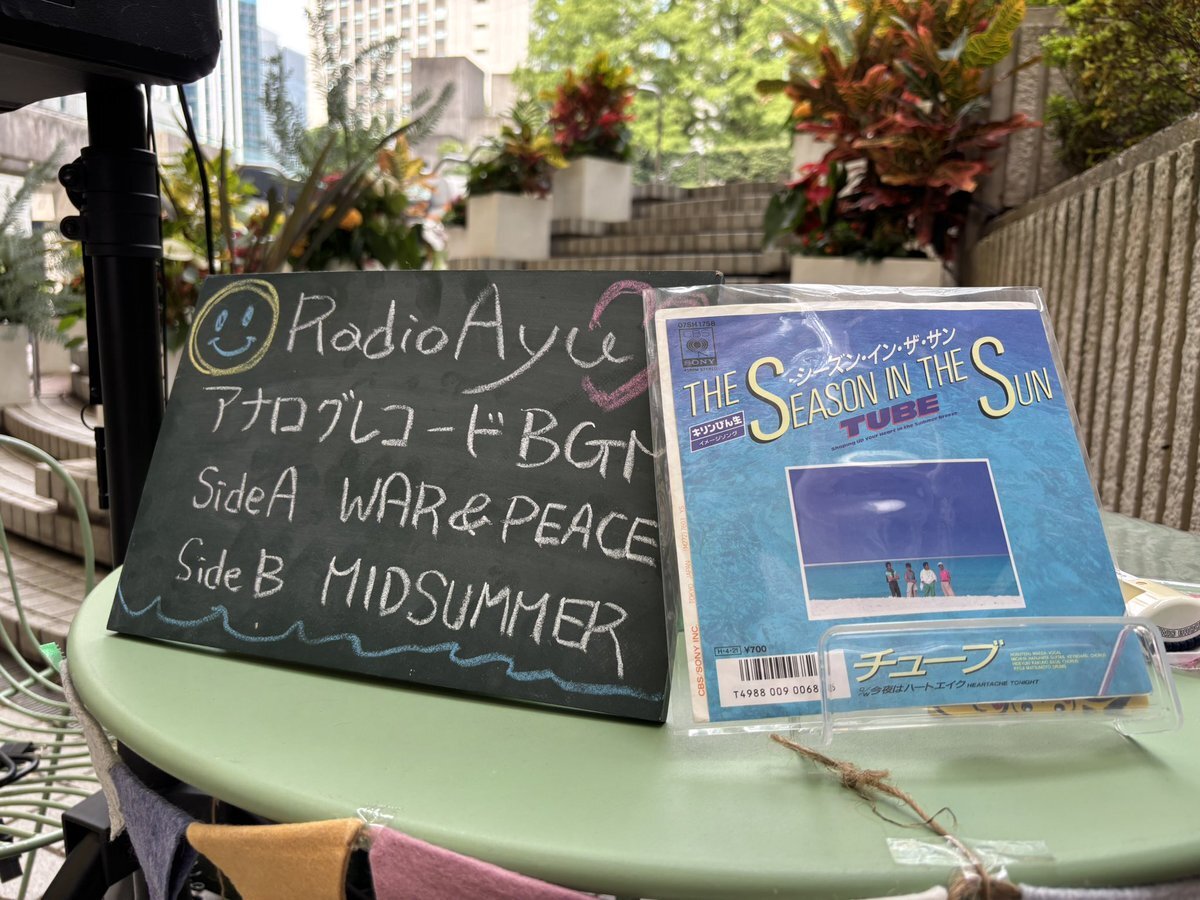 Radio Ayu
アナログレコードBGM
Side A WAR & PEACE
Side B MIDSUMMER
07SH 1758
CBS
SONY
シーズン・イン・ザ・サン
THE SEASON IN THE SUN
TUBE
キリンびん生
イメージソング
CBS・SONY INC.
H-4-21 ¥700
T4988 009 0068
チューブ
今夜はハートエイク HEARTACHE TONIGHT